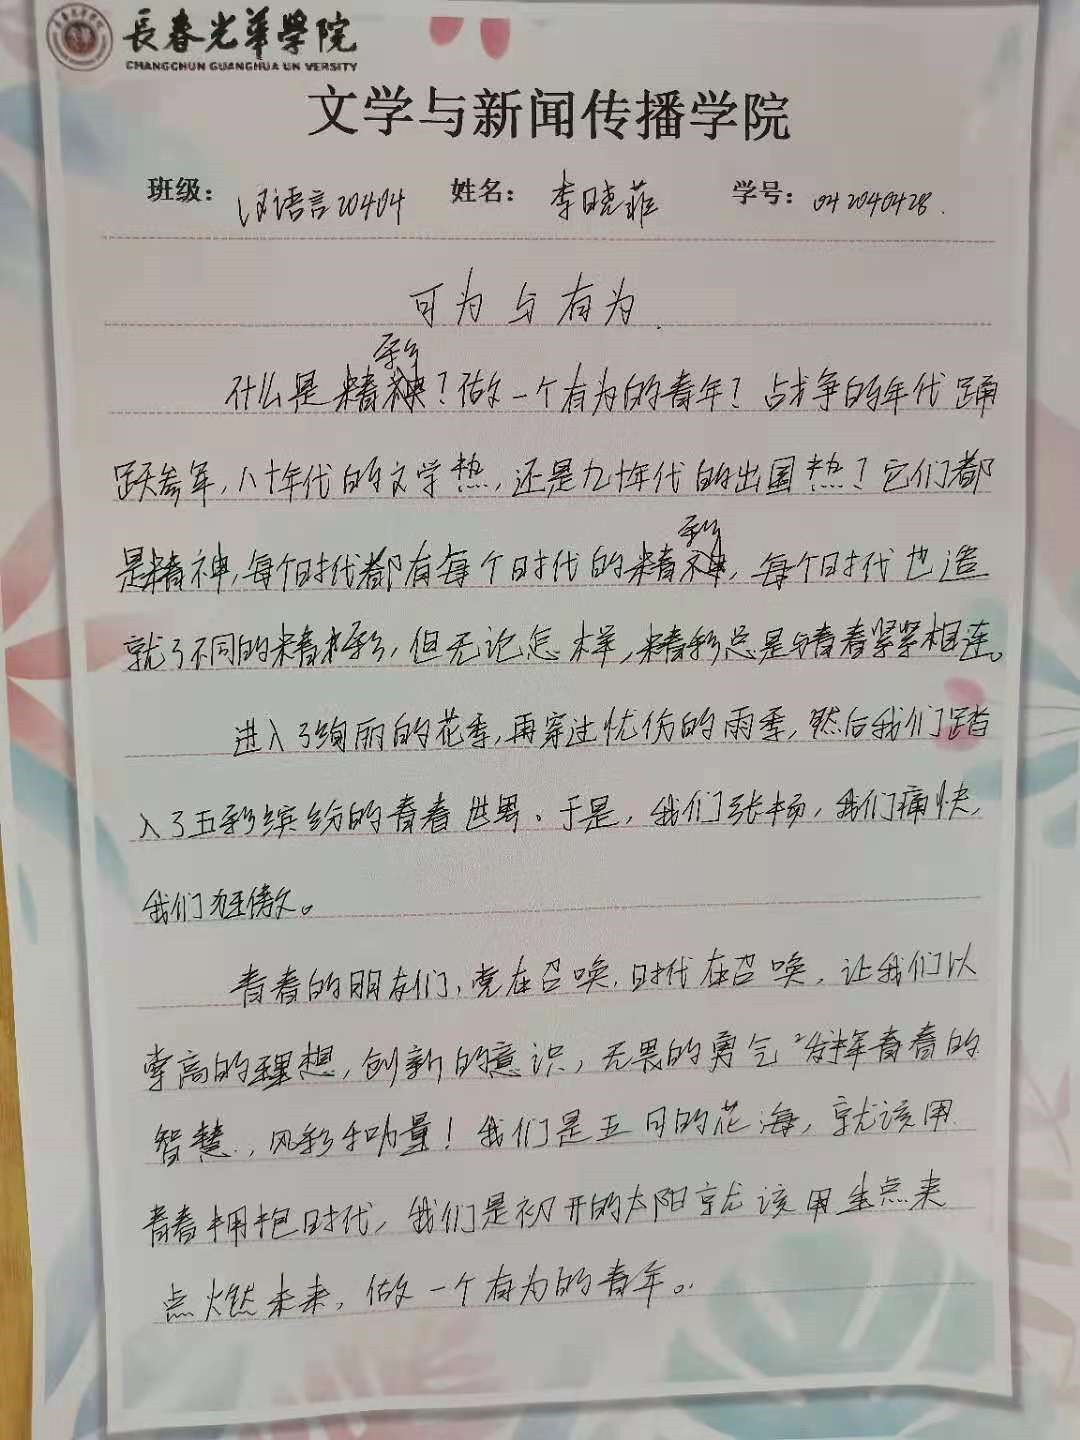 長春光華學院
CHANGCHUN GUANGHUA UN VERSITY
文学与新闻传播学院
班级： 汉语言20404 姓名： 李晓菲 学号： 042040428.
可为与有为.
什么是精彩？做一个有为的青年？战争的年代踊
跃参军，八十年代的文学热，还是九十年代的出国热？它们都
是精神，每个时代都有每个时代的精彩，每个时代也造
就了不同的精彩，但无论怎样，精彩总是与青春紧紧相连。
进入了绚丽的花季，再穿过忧伤的雨季，然后我们踏
入了五彩缤纷的青春世界。于是，我们张扬，我们痛快，
我们狂傲。
青春的朋友们，党在召唤，时代在召唤，让我们以
崇高的理想，创新的意识，无畏的勇气发挥青春的
智慧、风彩和力量！我们是五月的花海，就该用
青春拥抱时代，我们是初开的太阳就该用生点来
点燃未来，做一个有为的青年。